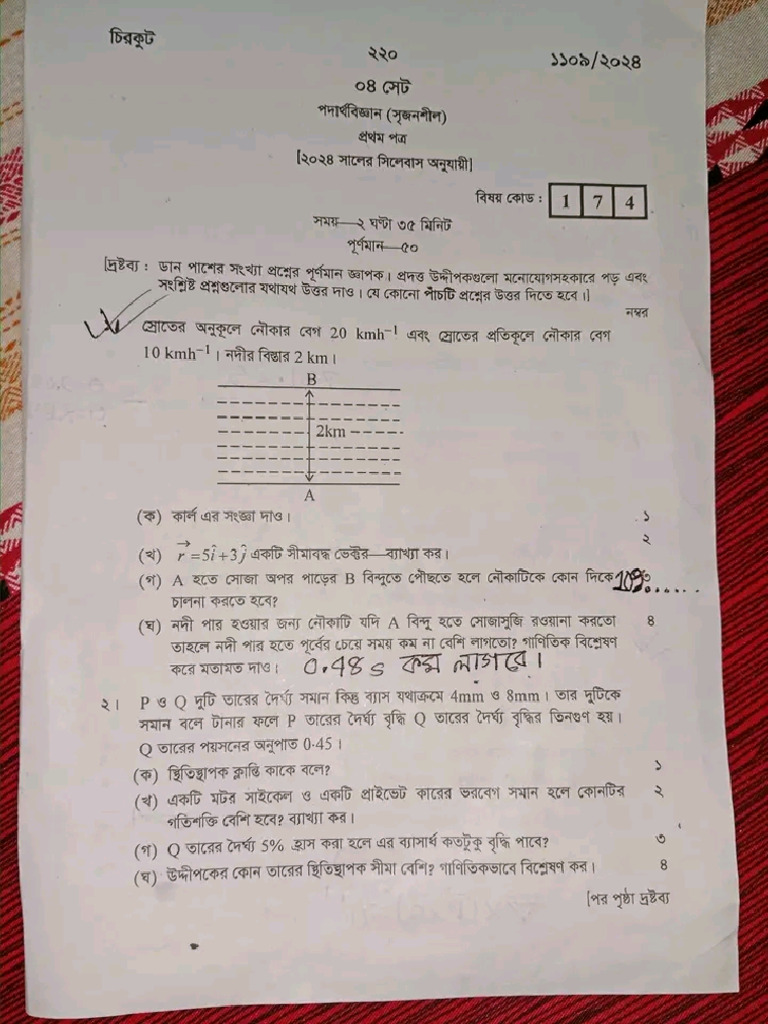 চিরকুট
২২০
১১০৯/২০২৪
০৪ সেট
পদার্থবিজ্ঞান (সৃজনশীল)
প্রথম পত্র
[২০২৪ সালের সিলেবাস অনুযায়ী]
বিষয় কোড : 1 7 4
সময়—২ ঘণ্টা ৩৫ মিনিট
পূর্ণমান—৫০
[দ্রষ্টব্য : ডান পাশের সংখ্যা প্রশ্নের পূর্ণমান জ্ঞাপক। প্রদত্ত উদ্দীপকগুলো মনোযোগসহকারে পড় এবং
সংশ্লিষ্ট প্রশ্নগুলোর যথাযথ উত্তর দাও। যে কোনো পাঁচটি প্রশ্নের উত্তর দিতে হবে।]
নম্বর
স্রোতের অনুকূলে নৌকার বেগ 20 kmh⁻¹ এবং স্রোতের প্রতিকূলে নৌকার বেগ
10 kmh⁻¹। নদীর বিস্তার 2 km।
B
2km
A
(ক) কার্ল এর সংজ্ঞা দাও। ১
(খ) r⃗ =5î+3ĵ একটি সীমাবদ্ধ ভেক্টর—ব্যাখ্যা কর। ২
(গ) A হতে সোজা অপর পাড়ের B বিন্দুতে পৌছতে হলে নৌকাটিকে কোন দিকে
চালনা করতে হবে?
(ঘ) নদী পার হওয়ার জন্য নৌকাটি যদি A বিন্দু হতে সোজাসুজি রওয়ানা করতো ৪
তাহলে নদী পার হতে পূর্বের চেয়ে সময় কম না বেশি লাগতো? গাণিতিক বিশ্লেষণ
করে মতামত দাও। 0.48 s কম লাগবে।
২। P ও Q দুটি তারের দৈর্ঘ্য সমান কিন্তু ব্যাস যথাক্রমে 4mm ও 8mm। তার দুটিকে
সমান বলে টানার ফলে P তারের দৈর্ঘ্য বৃদ্ধি Q তারের দৈর্ঘ্য বৃদ্ধির তিনগুণ হয়।
Q তারের পয়সনের অনুপাত 0·45।
(ক) স্থিতিস্থাপক ক্লান্তি কাকে বলে? ১
(খ) একটি মটর সাইকেল ও একটি প্রাইভেট কারের ভরবেগ সমান হলে কোনটির ২
গতিশক্তি বেশি হবে? ব্যাখ্যা কর।
(গ) Q তারের দৈর্ঘ্য 5% হ্রাস করা হলে এর ব্যাসার্ধ কতটুকু বৃদ্ধি পাবে? ৩
(ঘ) উদ্দীপকের কোন তারের স্থিতিস্থাপক সীমা বেশি? গাণিতিকভাবে বিশ্লেষণ কর। ৪
[পর পৃষ্ঠা দ্রষ্টব্য